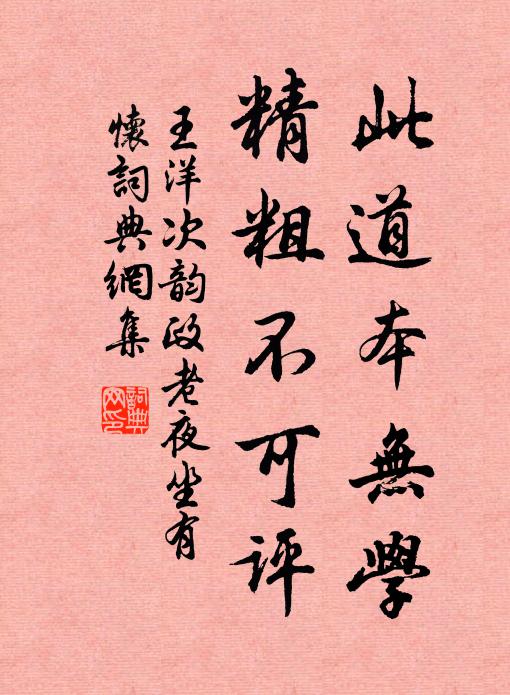 此道本無學
精粗不可評
王洋次韵政老夜坐有
懷詞典網集
詞典
网印